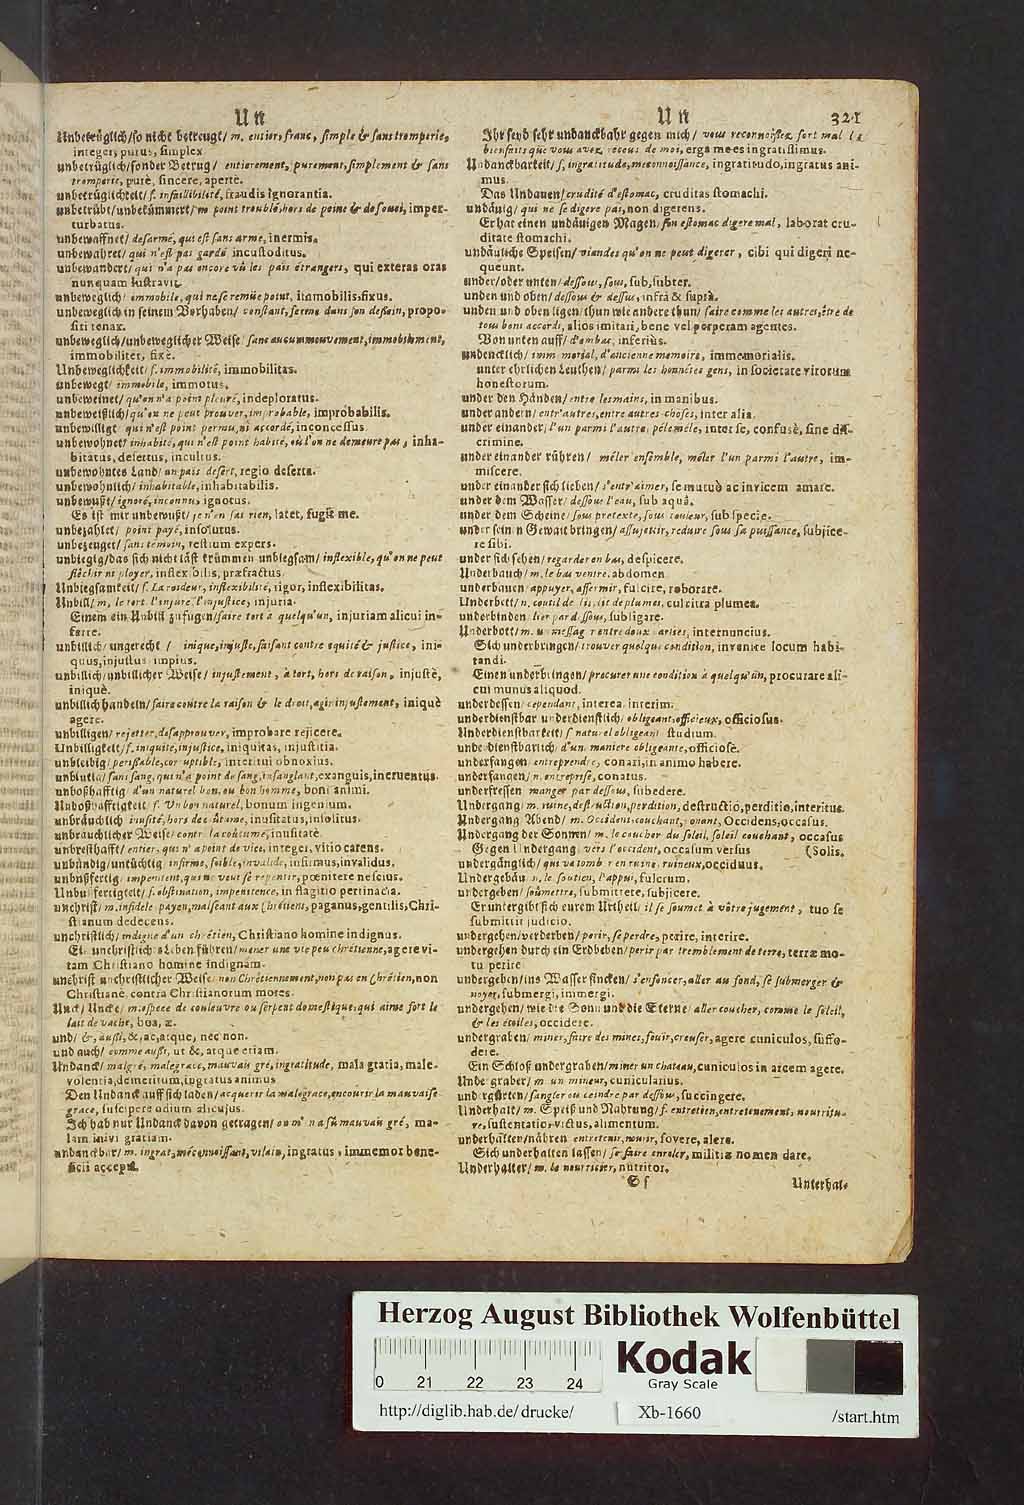 Un
Unbetrüglich/so nicht betreugt/ m. entier, franc, simple & sans tromperie,
integer, purus, simplex
unbetrüglich/sonder Betrug/ entierement, purement, simplement & sans
tromperie, purè, sincere, apertè.
unbetrüglichkeit/ f. infaillibilité, fraudis ignorantia.
unbetrübt/unbekümmert/ m point troublé, hors de peine & de souci, imper-
turbatus.
unbewaffnet/ desarmé, qui est sans arme, inermis.
unbewahret/ qui n'est pas gardé incustoditus.
unbewandert/ qui n'a pas encore vû les païs étrangers, qui exteras oras
nunquam lustravit.
unbeweglich/ immobile, qui ne se remüe point, immobilis, fixus.
unbeweglich in seinem Vorhaben/ constant, ferme dans son dessein, propo-
siti tenax.
unbeweglich/unbeweglicher Weise/ sans aucun mouvement, immobilement,
immobiliter, fixè.
Unbeweglichkeit/ f. immobilité, immobilitas.
unbewegt/ immobile, immotus.
unbeweinet/ qu'on n'a point pleuré, indeploratus.
unbeweißlich/ qu'on ne peut prouver, improbable, improbabilis.
unbewilligt qui n'est point permis, ni accordé, inconcessus
unbewohnet/ inhabité, qui n'est point habité, où l'on ne demeure pas, inha-
bitatus, desertus, incultus.
unbewohntes Land/ un païs desert, regio deserta.
unbewohnlich/ inhabitable, inhabitabilis.
unbewußt/ ignoré, inconnu, ignotus.
Es ist mir unbewußt/ je n'en sai rien, latet, fugit me.
unbezahlet/ point payé, insolutus.
unbezeuget/ sans témoin, testium expers.
unbiegig/das sich nicht läst krümmen unbiegsam/ inflexible, qu'on ne peut
fléchir ni ployer, inflexibilis, præfractus
Unbiegsamkeit/ f. La roideur, inflexibilité, rigor, inflexibilitas.
Unbill/ m, le tort. l'injure, l'injustice, injuria.
Einem ein Unbill zufugen/ faire tort à quelqu'un, injuriam alicui in-
ferre.
unbillich/ ungerecht / inique, injuste, faisant contre équité & justice, ini-
quus, injustus impius.
unbillich/unbillicher Weise/ injustement, à tort, hors de raison, injustè,
iniquè.
unbillich handeln/ faire contre la raison & le droit, agir injustement, iniquè
agere.
unbilligen/ rejetter, desapprouver, improbare rejicere.
Unbilligkeit/ f. iniquité, injustice, iniquitas, injustitia.
unbleibig/ perissable, corruptible, interitui obnoxius.
unblutig/ sans sang, qui n'a point de sang, insanglant, exanguis, incruentus.
unboßhafftig d'un naturel bon, ou bon homme, boni animi.
Unboßhafftigkeit f. Un bon naturel, bonum ingenium.
unbräuchlich inusité, hors de coûtume, inusitatus, insolitus.
unbrauchlicher Weise/ contre la coûtume, inusitatè.
unbresthafft/ entier, qui n'a point de vice, integer, vitio carens.
unbündig/untüchtig infirme, foible, invalide, infirmus, invalidus.
unbußfertig impenitent, qui ne veut se repentir, pœnitere nescius.
Unbußfertigkeit/ f. obstination, impenitence, in flagitio pertinacia.
unchrist/ m. infidele payen, malseant aux Chrêtiens, paganus, gentilis, Chri-
stianum dedecens.
unchristlich/ indigne d'un chrétien, Christiano homine indignus.
Ein unchristliches Leben führen/ mener une vie peu chrétienne, agere vi-
tam Christiano homine indignam.
unchrist unchristlicher Weise/ non Chrétiennement, non pas en Chrétien, non
Christianè, contra Christianorum mores.
Unck/ Uncke/ m. espece de couleuvre ou serpent domestique, qui aime fort le
lait de vache, boa, æ.
und/ &, aussi, &, ac, atque, nec non.
und auch/ comme aussi, ut &, atque etiam.
Undanck/ malgré, malegrace, mauvais gré, ingratitude, mala gratia, male-
volentia, demeritum, ingratus animus
Den Undanck auff sich laden/ acquerir la malegrace, encourir la mauvaise
grace, suscipere odium alicujus.
Ich hab nur Undanck davon getragen/ on m'en a sû mauvais gré, ma-
lam inivi gratiam.
undanckbar/ m. ingrat, méconnoissant, vilain, ingratus, immemor bene-
ficii accepti.
Un
321
Ihr seyd sehr undanckbahr gegen mich/ vous reconnoissez fort mal les
bienfaits que vous avez receus de moi, erga me es ingratissimus.
Undanckbarkeit/ f, ingratitude, meconnoissance, ingratitudo, ingratus ani-
mus.
Das Undauen/ crudité d'estomac, cruditas stomachi.
undäuig/ qui ne se digere pas, non digerens.
Er hat einen undäuigen Magen/ son estomac digere mal, laborat cru-
ditate stomachi.
undäuliche Speisen/ viandes qu'on ne peut digerer, cibi qui digeri ne-
queunt.
under/oder unten/ dessous, sous, sub, subter.
unden und oben/ dessous & dessus, infrà & suprà.
unden und oben ligen/thun wie andere thun/ faire comme les autres, être de
tous bons accords, alios imitari, bene vel perperam agentes.
Von unten auff/ d'embas, inferiùs.
undencklich/ immemorial, d'ancienne memoire, immemorialis.
unter ehrlichen Leuthen/ parmi les honnétes gens, in societate virorum
honestorum.
under den Händen/ entre les mains, in manibus.
under andern/ entr'autres, entre autres choses, inter alia.
under einander/ l'un parmi l'autre, péleméle, inter se, confusè, sine dis-
crimine.
under einander rühren/ méler ensemble, méler l'un parmi l'autre, im-
miscere.
under einander sich lieben/ s'entr'aimer, se mutuò ac invicem amare.
under dem Wasser/ dessous l'eau, sub aquâ.
under dem Scheine/ sous pretexte, sous couleur, sub specie.
under seinen Gewalt bringen/ assujetir, reduire sous sa puissance, subjice-
re sibi.
under sich sehen/ regarder en bas, despicere.
Underbauch/ m. le bas ventre, abdomen.
underbauen/ appuyer, affermir, fulcire, roborare.
Underbett/ n. coutil de lit, lit de plumes, culcitra plumea.
underbinden/ lier par dessous, subligare.
Underbott/ m. un messager entre deux parties, internuncius.
Sich underbringen/ trouver quelque condition, invenire locum habi-
tandi.
Einen underbringen/ procurer une condition à quelqu'ün, procurare ali-
cui munus aliquod.
underdessen/ cependant, interea interim.
underdienstbar underdienstlich/ obligeant, officieux, officiosus.
Underdienstbarkeit/ f naturel obligeant studium.
underdienstbarlich/ d'un maniere obligeante, officiose.
underfangen/ entreprendre, conari, in animo habere.
underfangen/ n. entreprise, conatus.
underfressen manger par dessous, subedere.
Undergang/ m. ruine, destruction, perdition, destructio, perditio, interitus.
Undergang Abend/ m. Occident, couchant, ponant, Occidens, occasus.
Undergang der Sonnen/ m. le coucher du soleil, soleil couchant, occasus
Gegen Undergang vers l'occident, occasum versus (Solis.
undergänglich/ qui va tomber en ruine, ruineux, occiduus.
Undergebäu n. le soutien, l'appui, fulcrum.
undergeben/ soûmettre, submittere, subjicere.
Er untergibt sich eurem Urtheil/ il se soumet à vôtre jugement, tuo se
submittit judicio.
undergehen/verderben/ perir, se perdre, perire, interire.
undergehen durch ein Erdbeben/ perir par tremblement de terre, terræ mo-
tu perire
undergehen/ins Wasser sincken/ s'enfoncer, aller au fond, se submerger &
noyer, submergi, immergi.
undergehen/ wie die Sonn und die Sterne/ aller coucher, comme le soleil,
& les étoiles, occidere.
undergraben/ miner, faire des mines, fouïr, creuser, agere cuniculos, suffo-
dere.
Ein Schloß undergraben/ miner un chateau, cuniculos in arcem agere.
Undergraber/ m un mineur, cunicularius.
undergürten/ sangler ou ceindre par dessous, succingere.
Underhalt/ m. Speiß und Nahrung/ f. entretien, entretenement, nourritu-
re, sustentatio, victus, alimentum.
underhalten/nähren entretenir, nourir, fovere, alere.
Sich underhalten lassen/ se faire enroler, militiæ nomen dare.
Underhalter/ m. le nourricier, nutritor.
Ss
Unterhal-
Herzog August Bibliothek Wolfenbüttel
0 21 22 23 24
Kodak
Gray Scale
http://diglib.hab.de/drucke/ Xb-1660 /start.htm